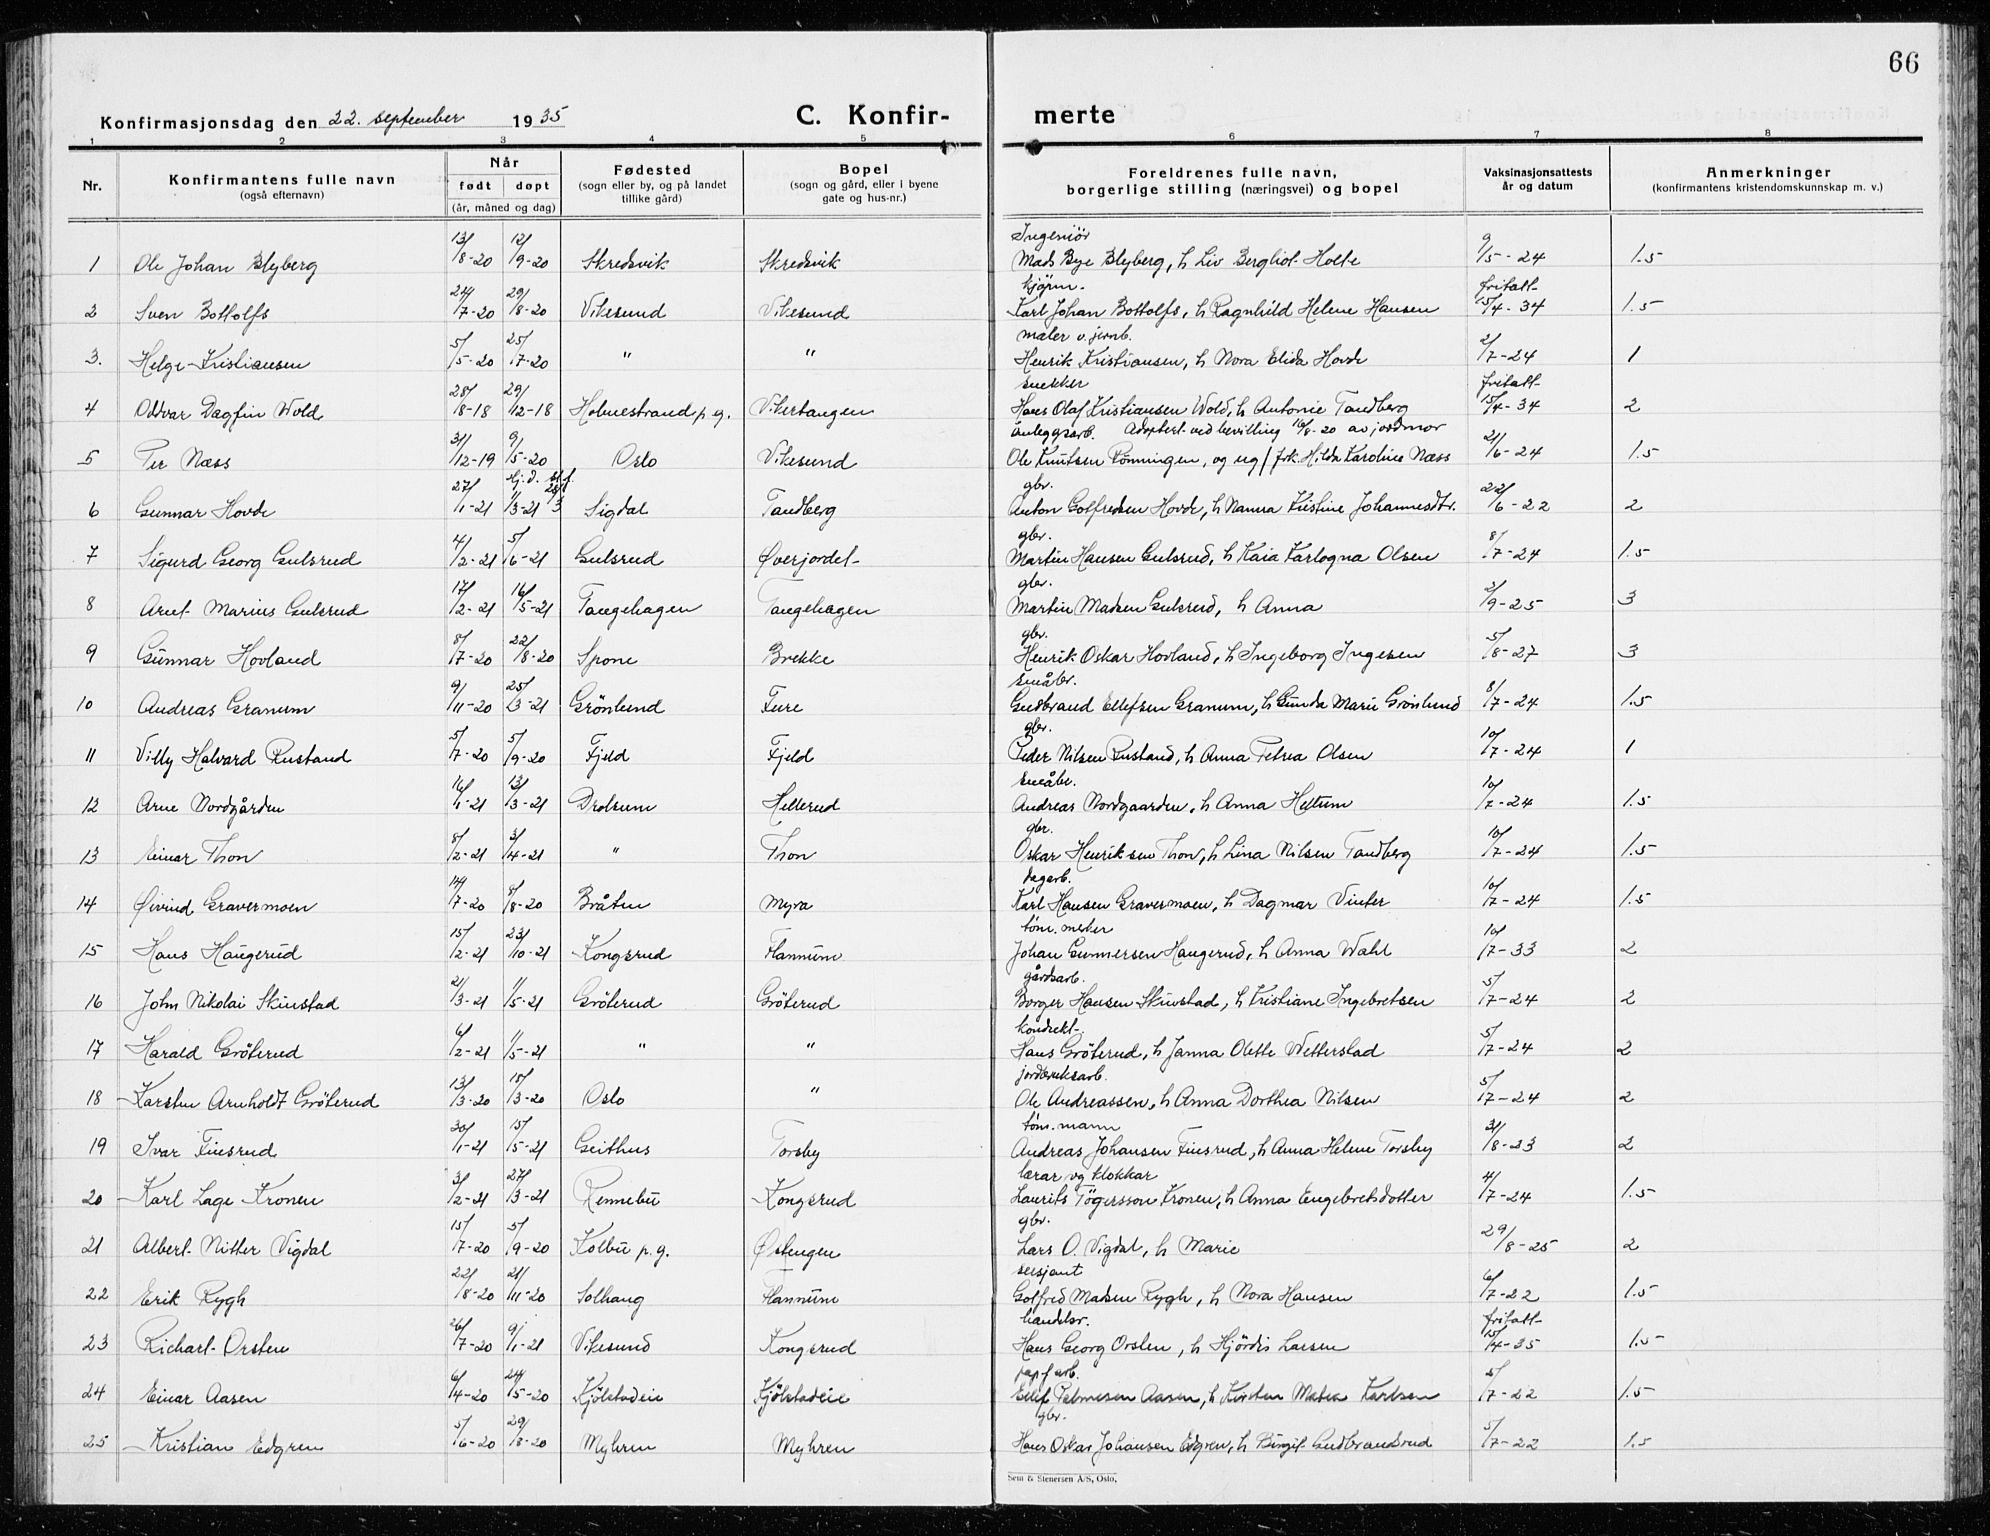 66
Konfirmasjonsdag den 22. september 1935 C. Konfir- merte
1 2 3 4 5 6 7 8
Nr. Konfirmantens fulle navn (også efternavn) Når født døpt (år, måned og dag) Fødested (sogn eller by, og på landet tillike gård) Bopel (sogn og gård, eller i byene gate og hus-nr.) Foreldrenes fulle navn, borgerlige stilling (næringsvei) og bopel Vaksinasjonsattests år og datum Anmerkninger (konfirmantens kristendomskunnskap m. v.)
Ingeniør
1 Ole Johan Blyberg 13/8-20 12/9-20 Skredsvik Skredsvik Mads Bye Blyberg, h Liv Bergliot Holte 9/5-24 1.5
kjøpm. fritatt
2 Sven Bottolfs 24/7-20 29/8-20 Vikesund Vikesund Karl Johan Bottolfs, h Ragnhild Helene Hansen 15/4-34 1.5
maler v. jernb.
3. Helge Kristiansen 5/5-20 25/7-20 " " Henrik Kristiansen, h Nora Elida Hovde 2/7-24 1
snekker fritatt
4 Oddvar Dagfin Wold 28/8-18 29/12-18 Holmestrand p.g. Vikertangen Hans Olaf Kristiansen Wold, h Antonie Tandberg 15/4-34 2
anleggsarb. Adoptert ved bevilling 16/8-20 av jordmor
5 Per Næss 31/12-19 9/5-20 Oslo Vikesund Ole Knutsen Rønningen, og ug/ frk. Hilda Karoline Næss 21/6-24 1.5
hj.d. st.f. gbr.
6 Gunnar Hovde 27/1-21 11/3-21 28/3 Sigdal Tandberg Anton Golfredsen Hovde, h Nanna Kistine Johannesdtr. 22/6-22 2
gbr.
7 Sigurd Georg Gulsrud 4/2-21 5/6-21 Gulsrud Øverjordet Martin Hansen Gulsrud, h Kaia Karlogna Olsen 8/7-24 1.5
gbr.
8 Arnt Marius Gulsrud 17/2-21 16/5-21 Tangehagen Tangehagen Martin Madsen Gulsrud, h Anna 2/9-25 3
gbr.
9 Gunnar Hovland 8/7-20 22/8-20 Spone Brekke Henrik Oskar Hovland, h Ingeborg Ingesen 5/8-27 3
småbr.
10 Andreas Granum 9/11-20 25/3-21 Grönlund Fure Gudbrand Ellefsen Granum, h Gunda Marie Grönlund 8/7-24 1.5
gbr.
11 Villy Halvard Rustand 5/7-20 5/9-20 Fjeld Fjeld Peder Nilsen Rustand, h Anna Petrea Olsen 10/7-24 1
småbr.
12 Arne Nordgården 16/1-21 13/3-21 Drolsum Hellerud Andreas Nordgaarden, h Anna Heltum 10/7-24 1.5
gbr.
13 Einar Thon 8/2-21 3/4-21 " Thon Oskar Henriksen Thon, h Lina Nilsen Tandberg 10/7-24 1.5
dagarb.
14 Øivind Gravermoen 14/7-20 8/8-20 Bråten Myra Karl Hansen Gravermoen, h Dagmar Vinter 10/7-24 1.5
töm. merker
15 Hans Haugerud 15/2-21 23/10-21 Kongsrud Flannum Johan Gunnersen Haugerud, h Anna Wahl 10/7-33 2
gårdsarb.
16 John Nikolai Skinstad 21/3-21 1/5-21 Gröterud Gröterud Borger Hansen Skinstad, h Kristiane Ingebretsen 5/7-24 2
kondukt.
17 Harald Gröterud 6/2-21 1/5-21 " " Hans Gröterud, h Janna Olette Wetterstad 5/7-24 2
jordbruksarb.
18 Karsten Arnholdt Gröterud 13/3-20 15/3-20 Oslo " Ole Andreassen, h Anna Dorthea Nilsen 5/7-24 2
töm. mann
19 Ivar Finsrud 30/1-21 15/5-21 Geithus Torsby Andreas Johansen Finsrud, h Anna Helene Torsby 31/8-23 2
lærar og klokkar
20 Karl Lage Kronen 3/2-21 27/3-21 Rennebu Kongsrud Laurits Tögersson Kronen, h Anna Engebretsdotter 4/7-24 1.5
gbr.
21 Albert Nitter Vigdal 15/7-20 5/9-20 Kolbu p.g. Østengen Lars O. Vigdal, h Marie 29/8-25 2
sersjant
22 Erik Rygh 22/8-20 21/11-20 Solhaug Flannum Golfred Madsen Rygh, h Nora Hansen 6/7-22 1.5
handelsr. fritatt
23 Richart Orsten 26/7-20 9/1-21 Vikesund Kongsrud Hans Georg Orsten, h Hjördis Larsen 15/4-35 1.5
papf. arb.
24 Einar Aasen 6/4-20 24/5-20 Kjölstadeie Kjölstadeie Ellef Palmesen Aasen, h Kirsten Matea Karlsen 5/7-22 1.5
gbr.
25 Kristian Edgren 5/6-20 29/8-20 Myhren Myhren Hans Oskar Johansen Edgren, h Birgit Gudbrandsrud 5/7-22 1.5
Sem & Stenersen A/S, Oslo.